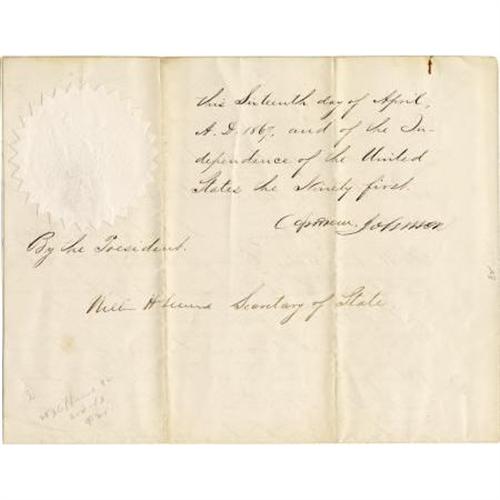 this Sixteenth day of April,
A.D. 1867, and of the In-
dependence of the United
States the Ninety first.
Andrew Johnson
By the President.
William H Seward Secretary of State.